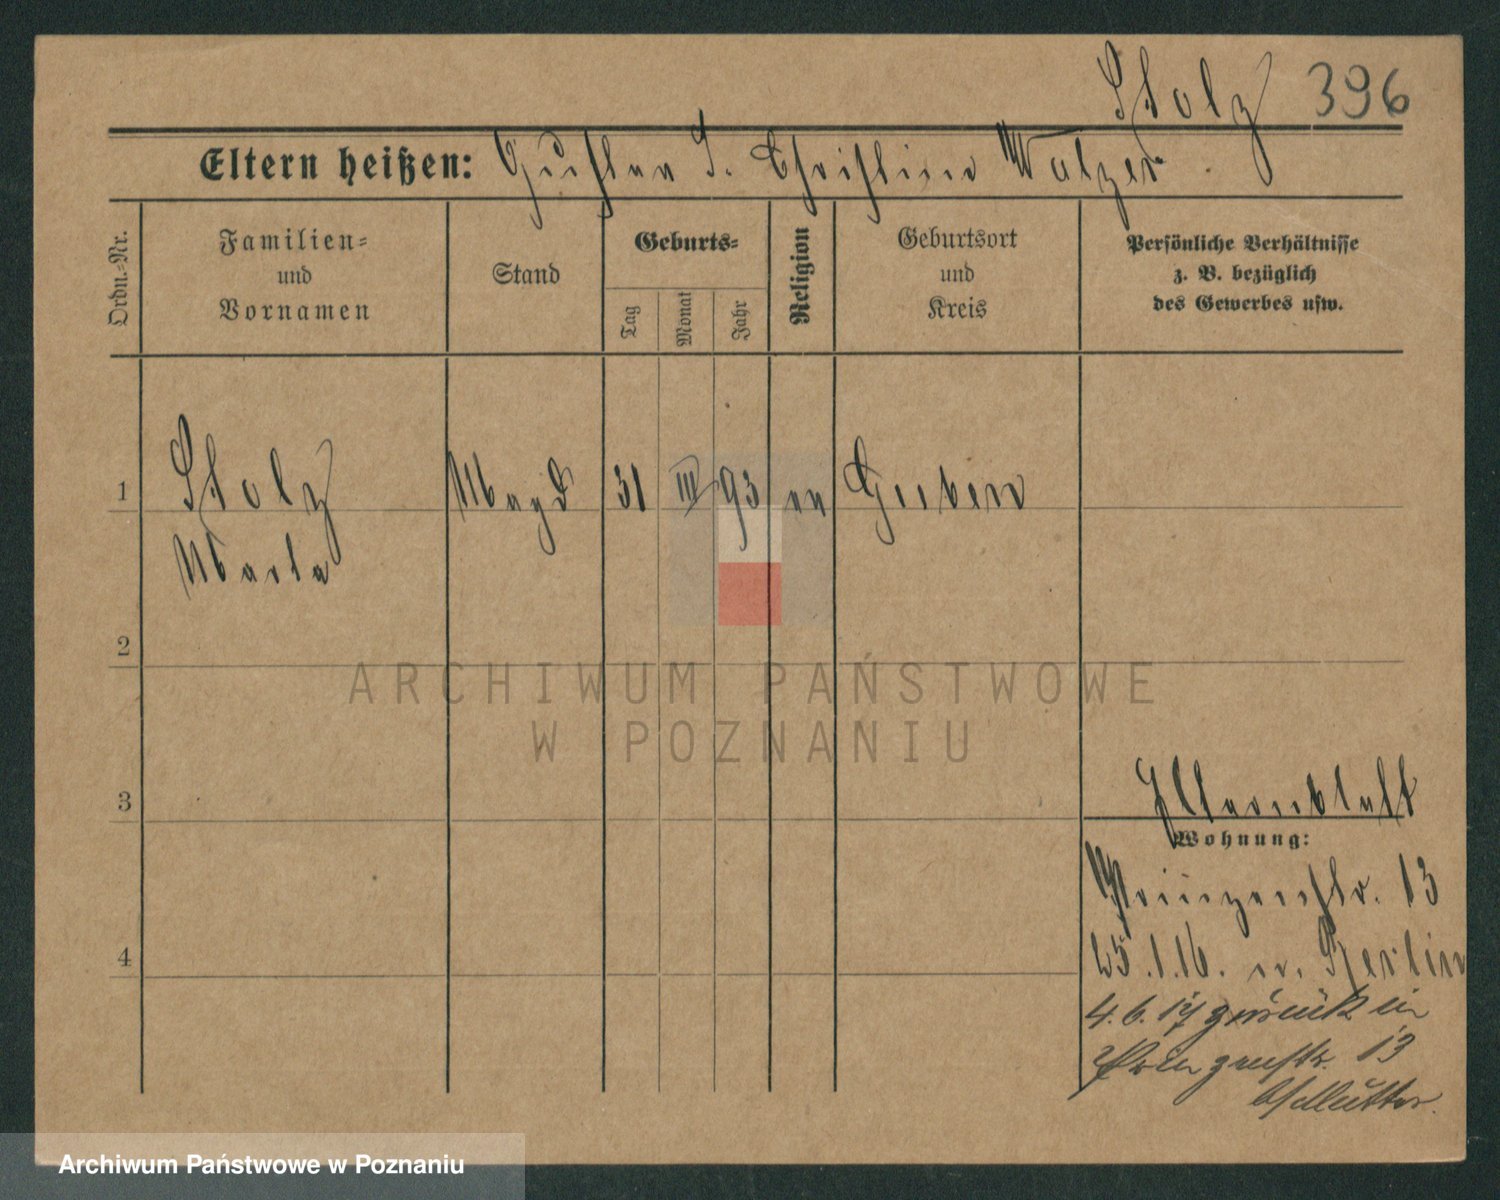 Stolz 396
Eltern heißen: Gustav S. Christine Walzer.
Ordn.=Nr.
Familien=
und
Vornamen
Stand
Geburts=
Tag
Monat
Jahr
Religion
Geburtsort
und
Kreis
Persönliche Verhältnisse
z. B. bezüglich
des Gewerbes usw.
1 Stolz Magd 31 III 93 ev Guben
Marta
2
3
4
Elternblatt
Wohnung:
Prinzenstr. 13
25.1.16. n. Berlin
4.6.17 zurück in
Prinzenstr. 13
ARCHIWUM PAŃSTWOWE
W POZNANIU
Archiwum Państwowe w Poznaniu